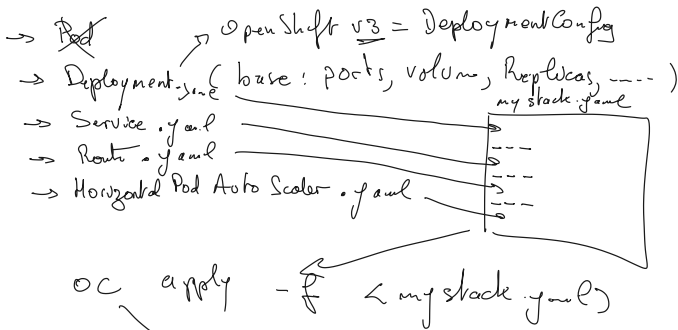 → Pod
→ OpenShift v3 = DeploymentConfig
→ Deployment.yaml ( base : ports, volume, Replicas, ---- )
my stack.yaml
→ Service.yaml
→ Route.yaml
→ Horizontal Pod Auto Scaler.yaml
---
---
---
oc apply -f <my stack.yaml>